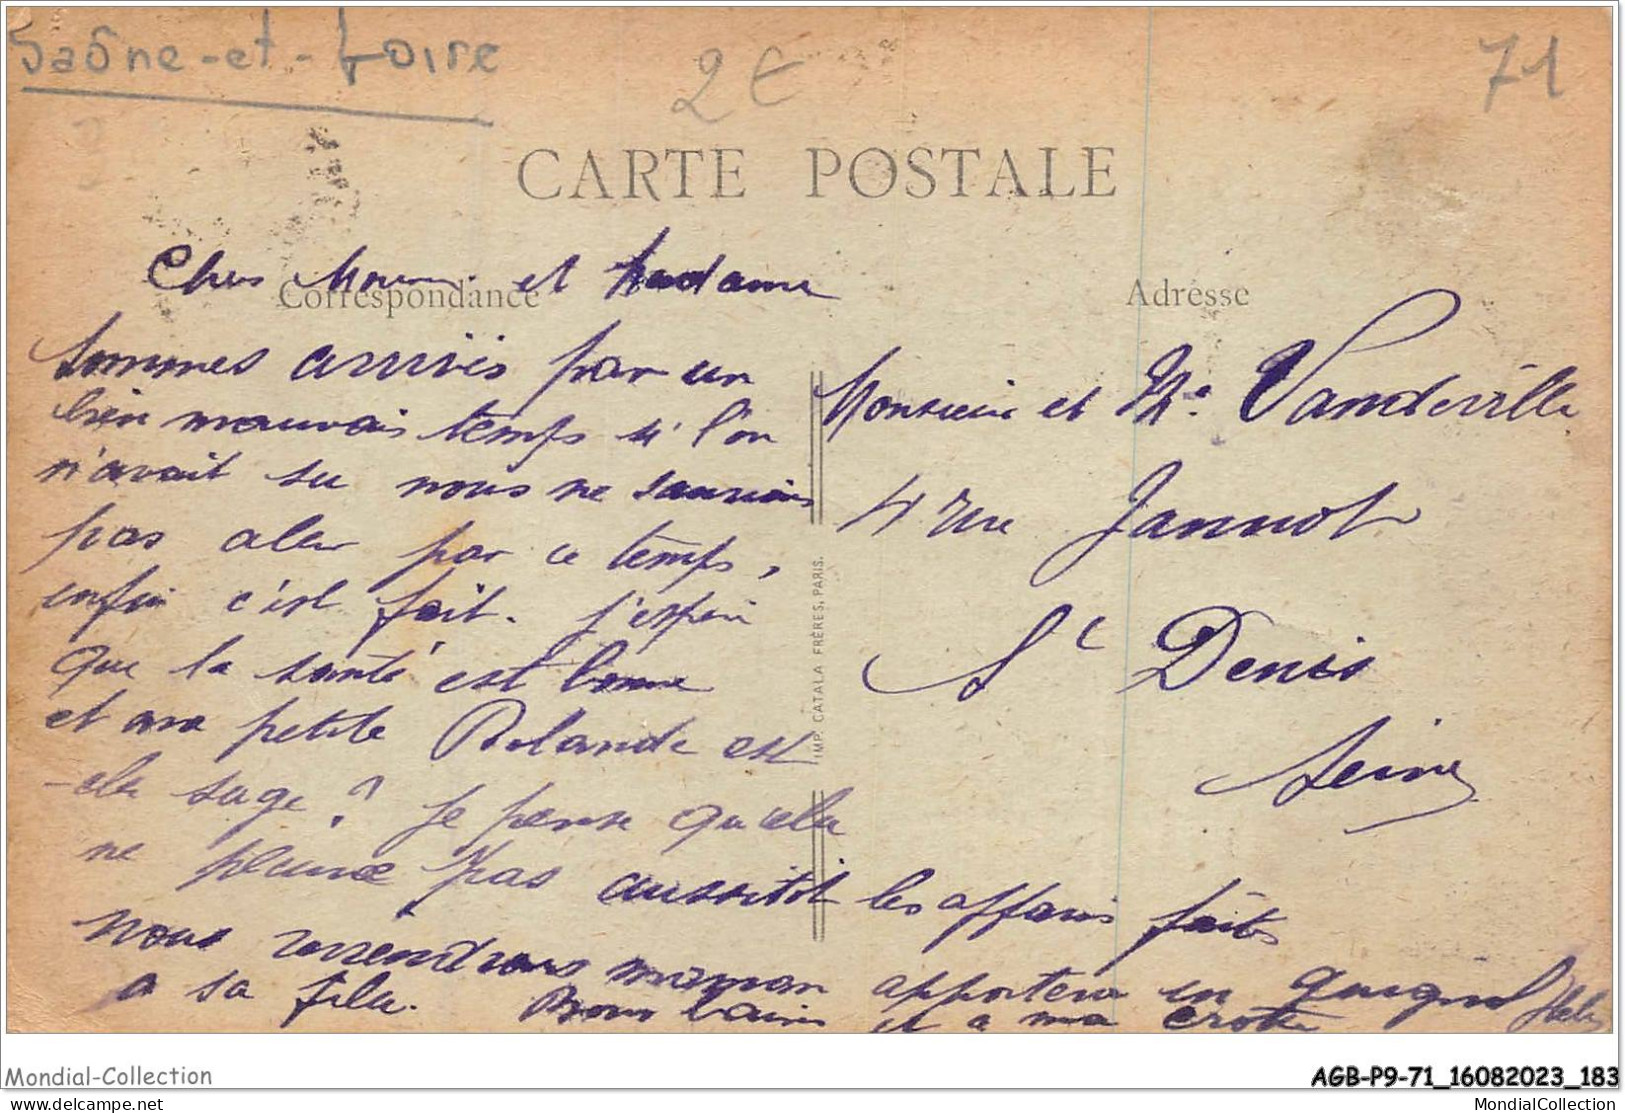 Saône-et-Loire
2€
71
CARTE POSTALE
Chers Monsieur et Madame
Correspondance
Adresse
Sommes arrivés par un
bien mauvais temps si l'on
n'avait su nous ne saurions
pas aler par ce temps,
enfin c'est fait. j'espère
que la santé est bonne
et ma petite Rolande est
-elle sage? je pense qu'elle
ne pleure pas aussitôt les affaires faites
nous reviendrons maman apportera un
a sa fille. Bons baisers et a ma
Monsieur et Me Vandeville
4 rue Jannot
St Denis
Seine
IMP. CATALA FRÈRES, PARIS.
Mondial-Collection
AGB-P9-71_16082023_183
delcampe.net
MondialCollection